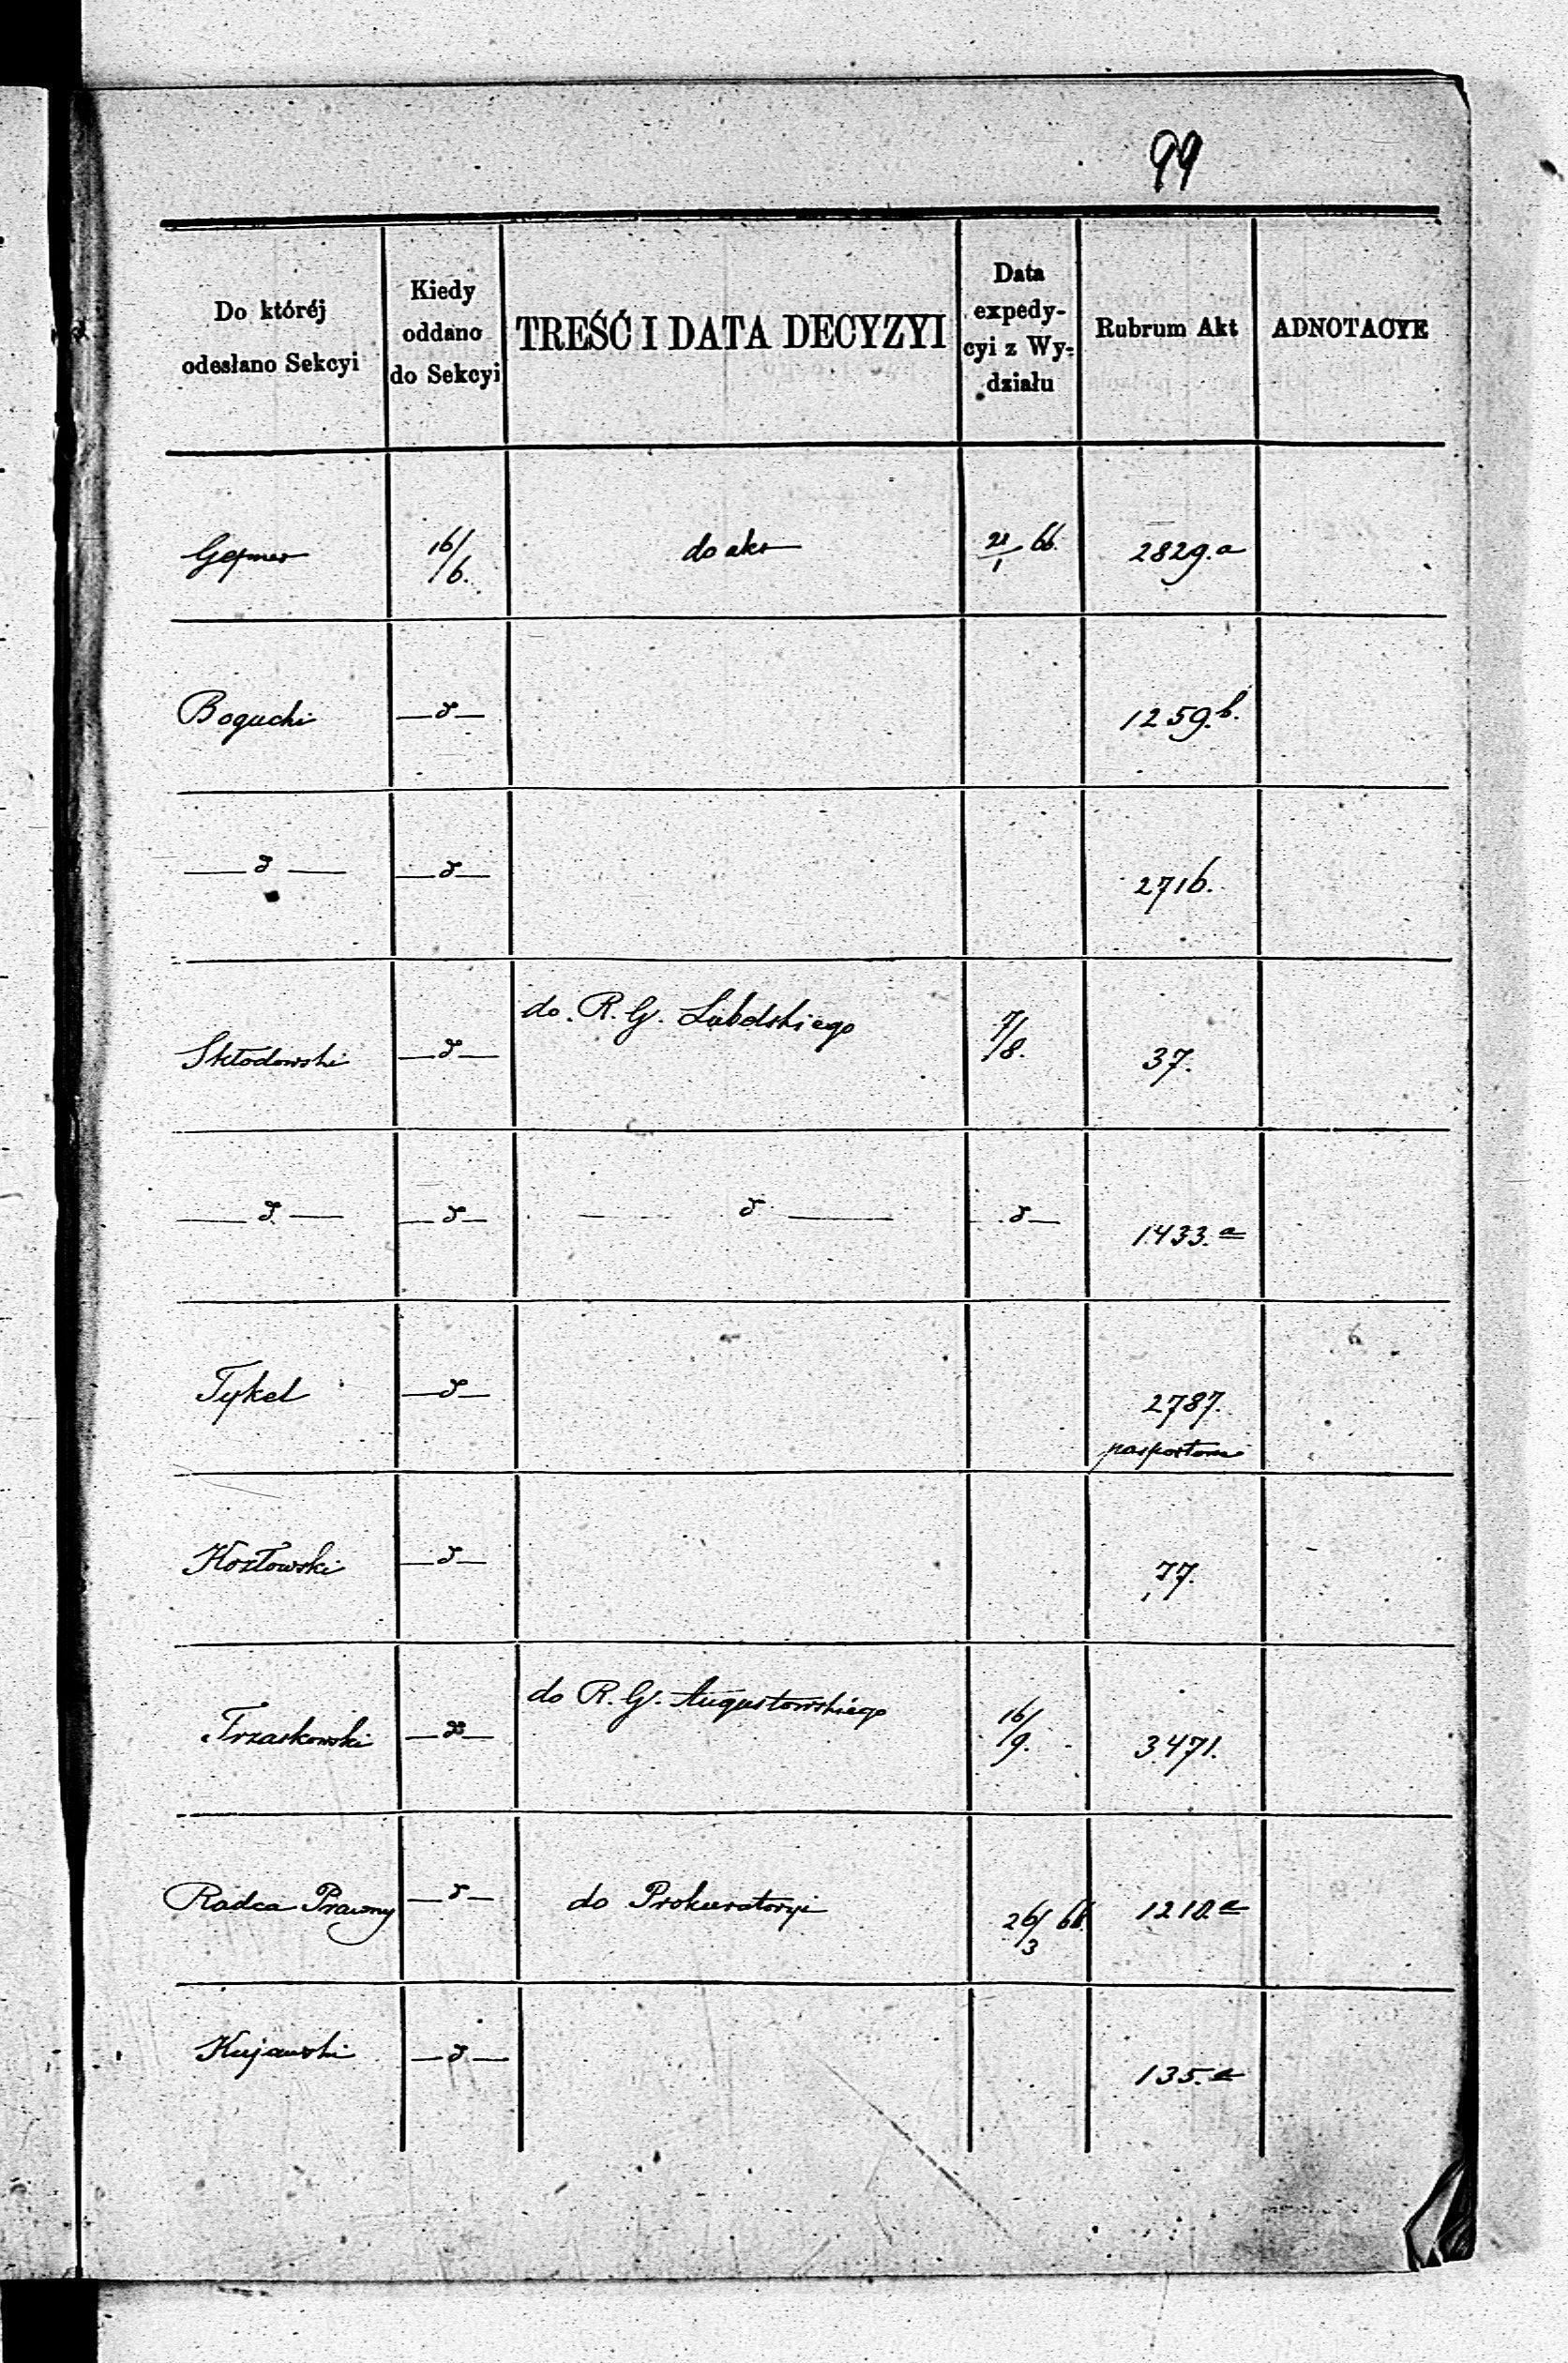 99
Do któréj
odesłano Sekcyi
Kiedy
oddano
do Sekcyi
TREŚĆ I DATA DECYZYI
Data
expedy-
cyi z Wy-
działu
Rubrum Akt
ADNOTACYE
16/6. do akt 21/1 66. 2829.a
Bogucki —d— 1259.b.
—d— —d— 2716.
Skłodowski —d— do R. G. Lubelskiego 7/8. 37.
—d— —d— —d— —d— 1433.a
Tykel —d— 2787.
paszportowe
Kozłowski —d— 77.
Trzaskowski —d— do R. G. Augustowskiego 16/9. 3471.
Radca Prawny —d— do Prokuratoryi 26/3 66. 1218.a
Kujawski —d— 135.a